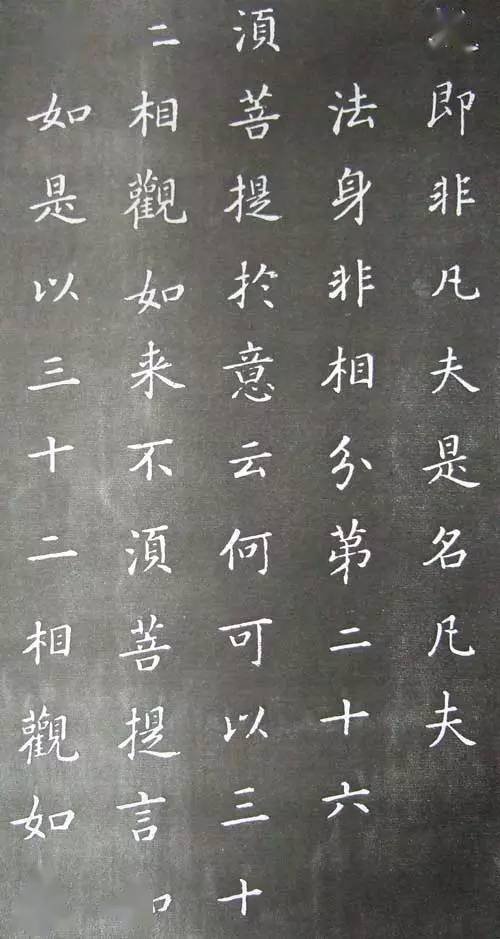 即非凡夫是名凡夫
法身非相分第二十六
湏菩提於意云何可以三十
二相觀如来不湏菩提言
如是以三十二相觀如